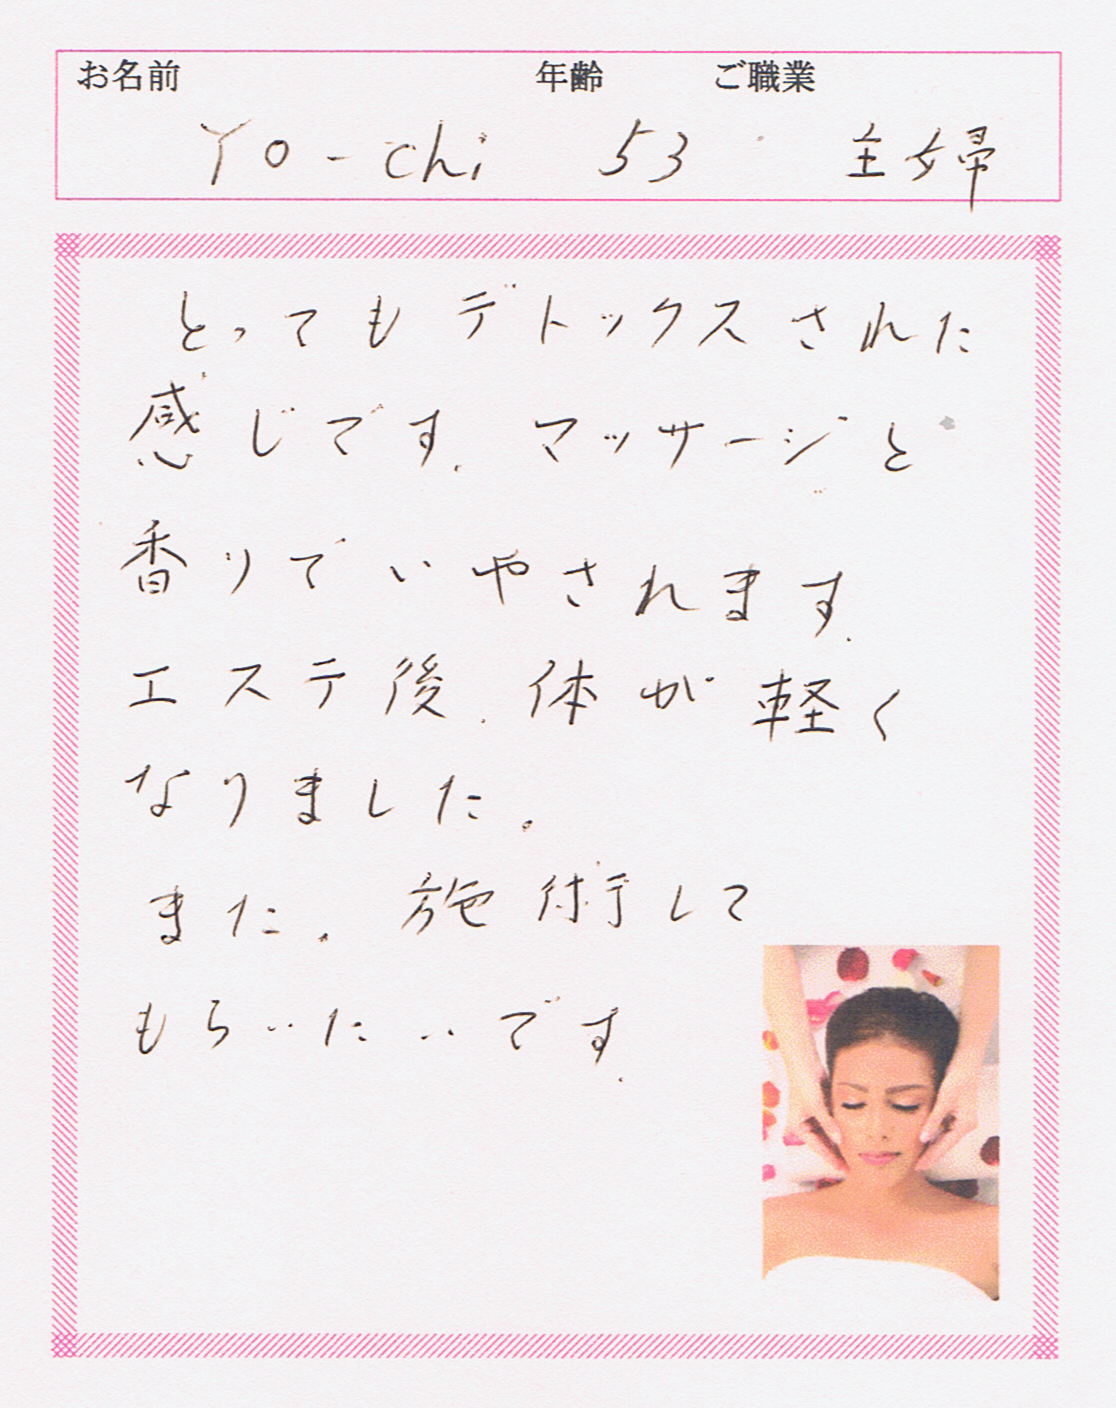 お名前 年齢 ご職業
Yo-chi 53 主婦
とってもデトックスされた
感じです。マッサージと
香りでいやされます。
エステ後、体が軽く
なりました。
また。施術して
もらいたいです。